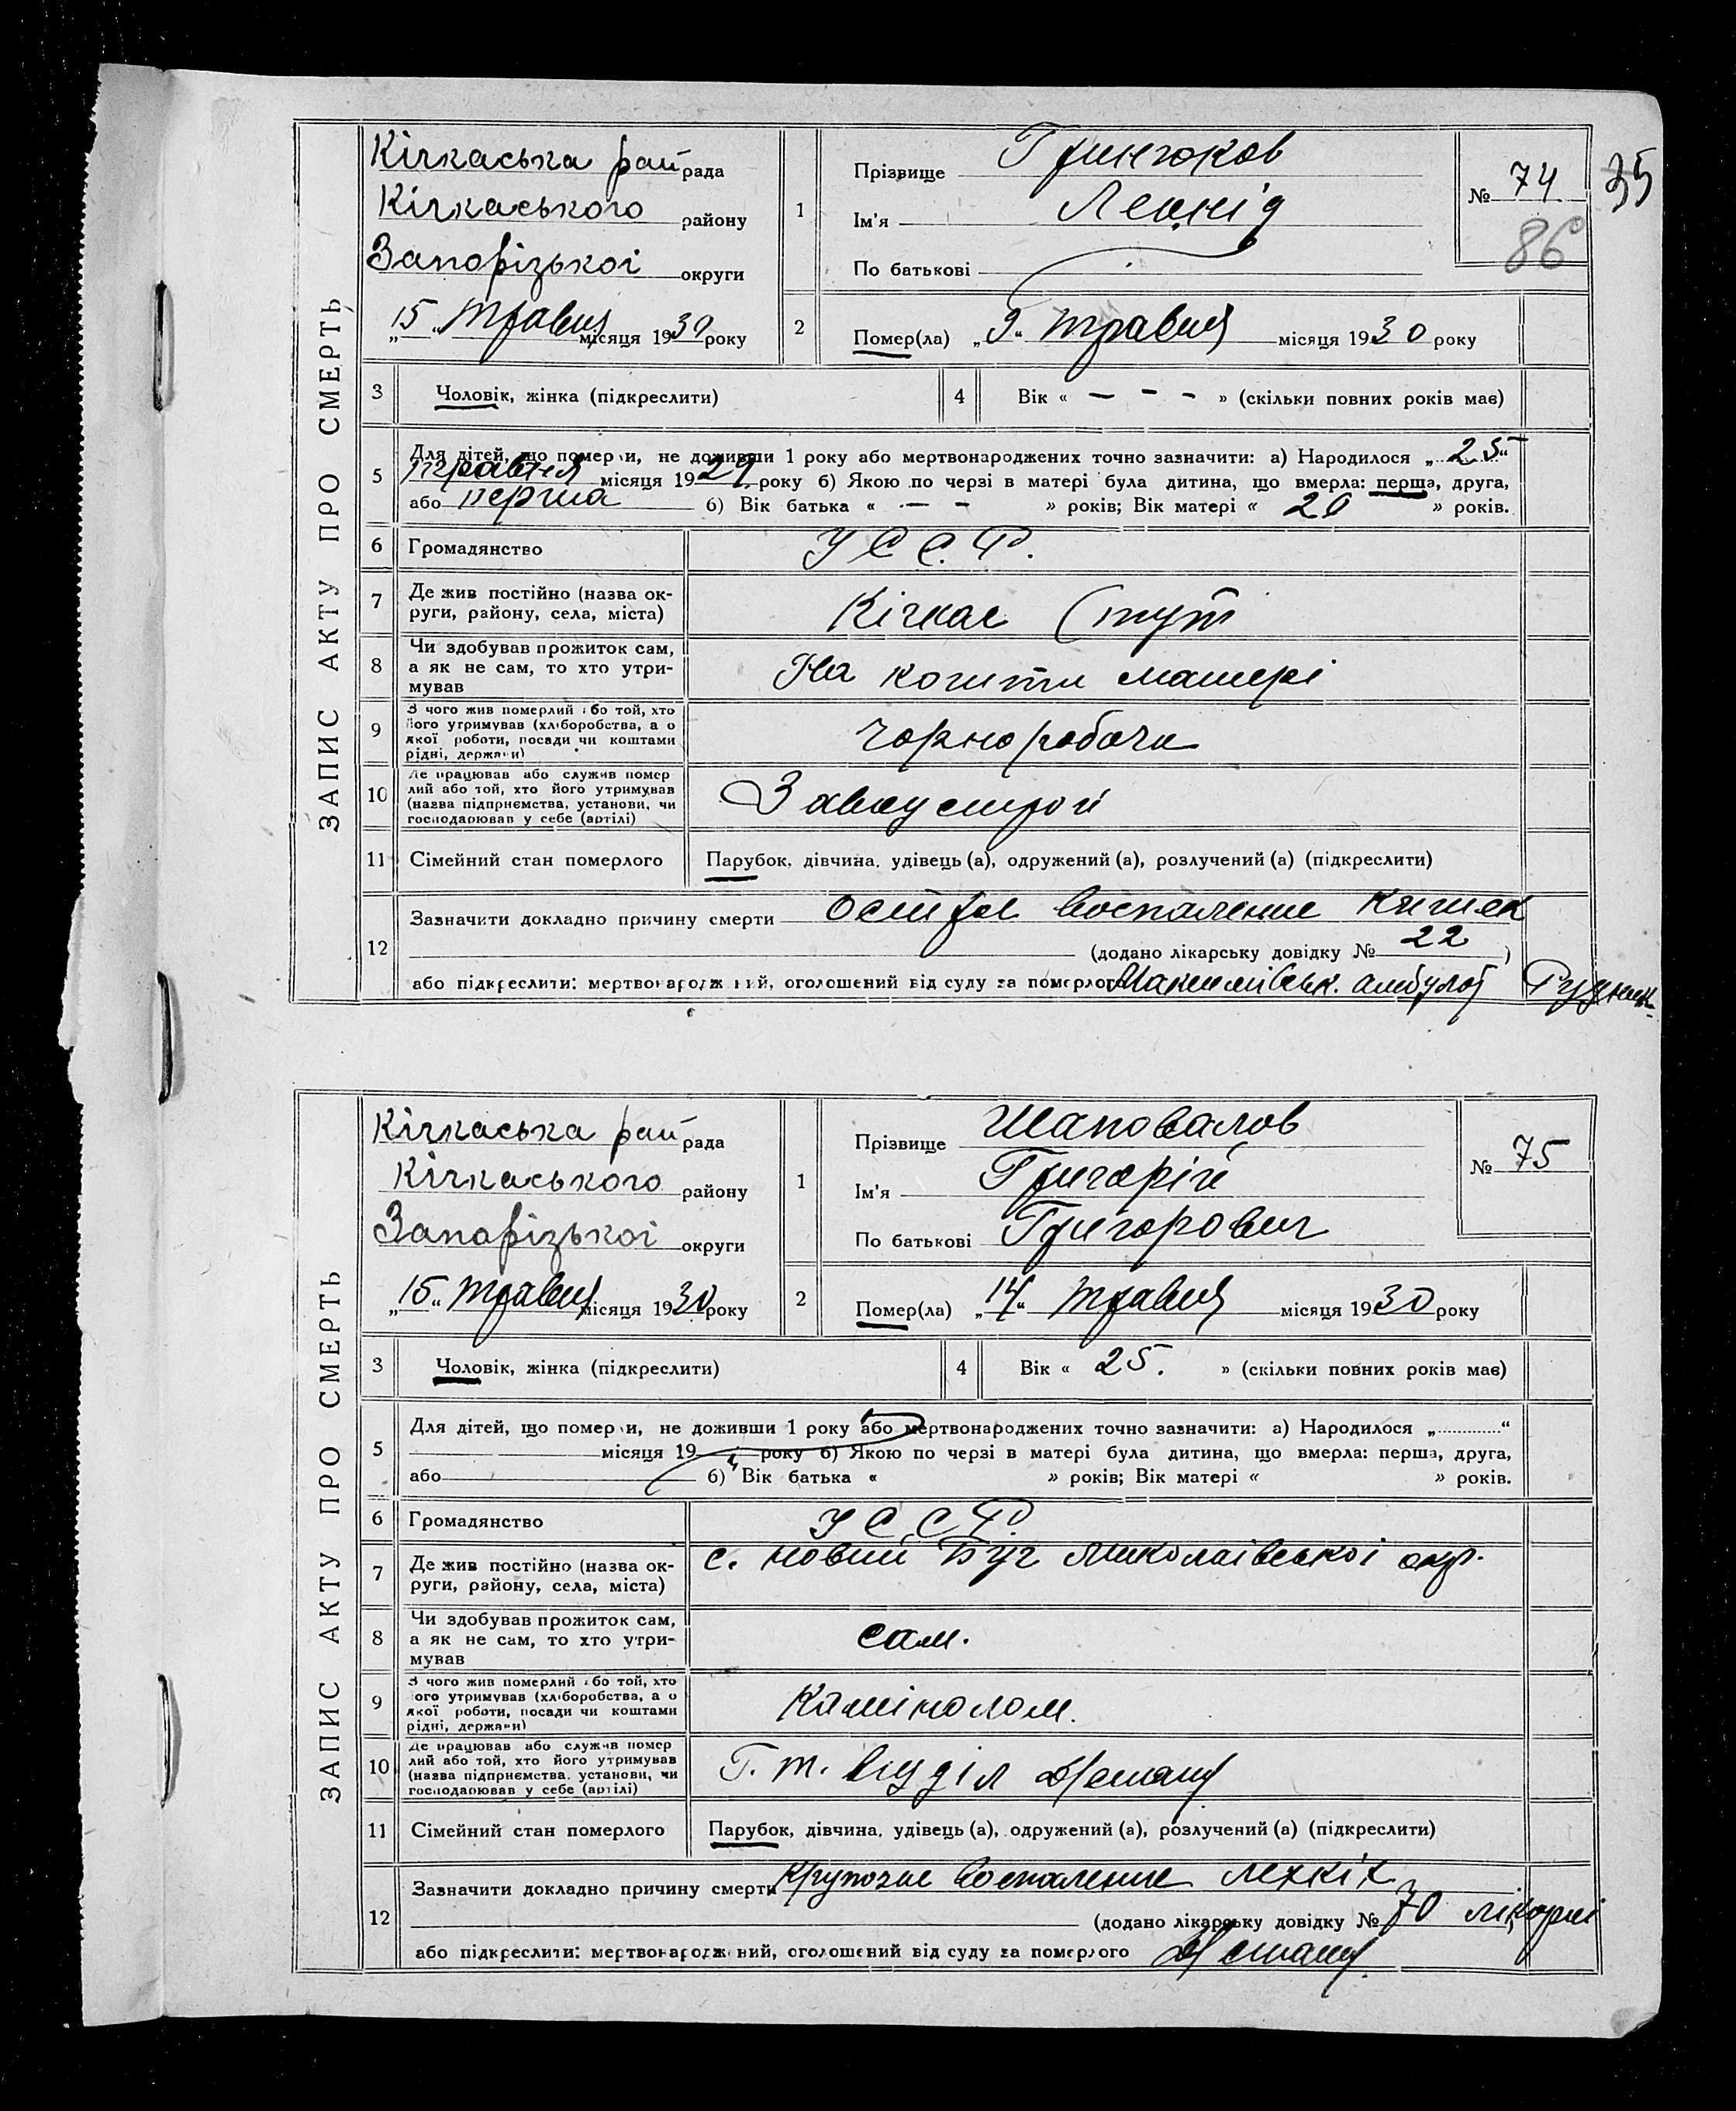 ЗАПИС АКТУ ПРО СМЕРТЬ
Кічкаська рай рада
Кічкаського району
Запорізької округи
„15“ травня місяця 1930 року
1
Прізвище
Ім'я Леонід
По батькові
№ 74
35
86
2
Помер(ла) „9“ травня місяця 1930 року
3 Чоловік, жінка (підкреслити)
4 Вік « — - - » (скільки повних років має)
5 Для дітей, що померли, не доживши 1 року або мертвонароджених точно зазначити: а) Народилося „25“
травня місяця 1929 року б) Якою по черзі в матері була дитина, що вмерла: перша, друга,
або перша б) Вік батька « — - » років; Вік матері « 20 » років.
6 Громадянство У С С Р.
7 Де жив постійно (назва ок-
руги, району, села, міста) Кічкас (тут
8 Чи здобував прожиток сам,
а як не сам, то хто утри-
мував На кошти матері
9 З чого жив померлий або той, хто
його утримував (хліборобства, а о
якої роботи, посади чи коштами
рідні, держави) чорноробоча
10 Де працював або служив помер
лий або той, хто його утримував
(назва підприємства, установи, чи
господарював у себе (артілі)
11 Сімейний стан померлого Парубок, дівчина, удівець (а), одружений (а), розлучений (а) (підкреслити)
12 Зазначити докладно причину смерти острое воспаление кишек
(додано лікарську довідку № 22 )
або підкреслити: мертвонароджений, оголошений від суду за померлого
ЗАПИС АКТУ ПРО СМЕРТЬ
Кічкаська рай рада
Кічкаського району
Запорізької округи
„15“ травня місяця 1930 року
1
Прізвище Шаповалов
Ім'я Григорій
По батькові Григорович
№ 75
2
Помер(ла) „14“ травня місяця 1930 року
3 Чоловік, жінка (підкреслити)
4 Вік « 25. » (скільки повних років має)
5 Для дітей, що померли, не доживши 1 року або мертвонароджених точно зазначити: а) Народилося „ “
місяця 19 року б) Якою по черзі в матері була дитина, що вмерла: перша, друга,
або б) Вік батька « » років; Вік матері « » років.
6 Громадянство У С С Р.
7 Де жив постійно (назва ок-
руги, району, села, міста) с. Новий Буг Миколаївської окр.
8 Чи здобував прожиток сам,
а як не сам, то хто утри-
мував сам.
9 З чого жив померлий або той, хто
ого утримував (хліборобства, а о
якої роботи, посади чи коштами
рідні, держави) Камінолом.
10 Де працював або служив помер
лий або той, хто його утримував
(назва підприємства, установи, чи
господарював у себе (артілі) Г. т.
11 Сімейний стан померлого Парубок, дівчина, удівець (а), одружений (а), розлучений (а) (підкреслити)
12 Зазначити докладно причину смерти Крупозне воспаление легкіх
(додано лікарську довідку № 70 лікарні
або підкреслити: мертвонароджений, оголошений від суду за померлого